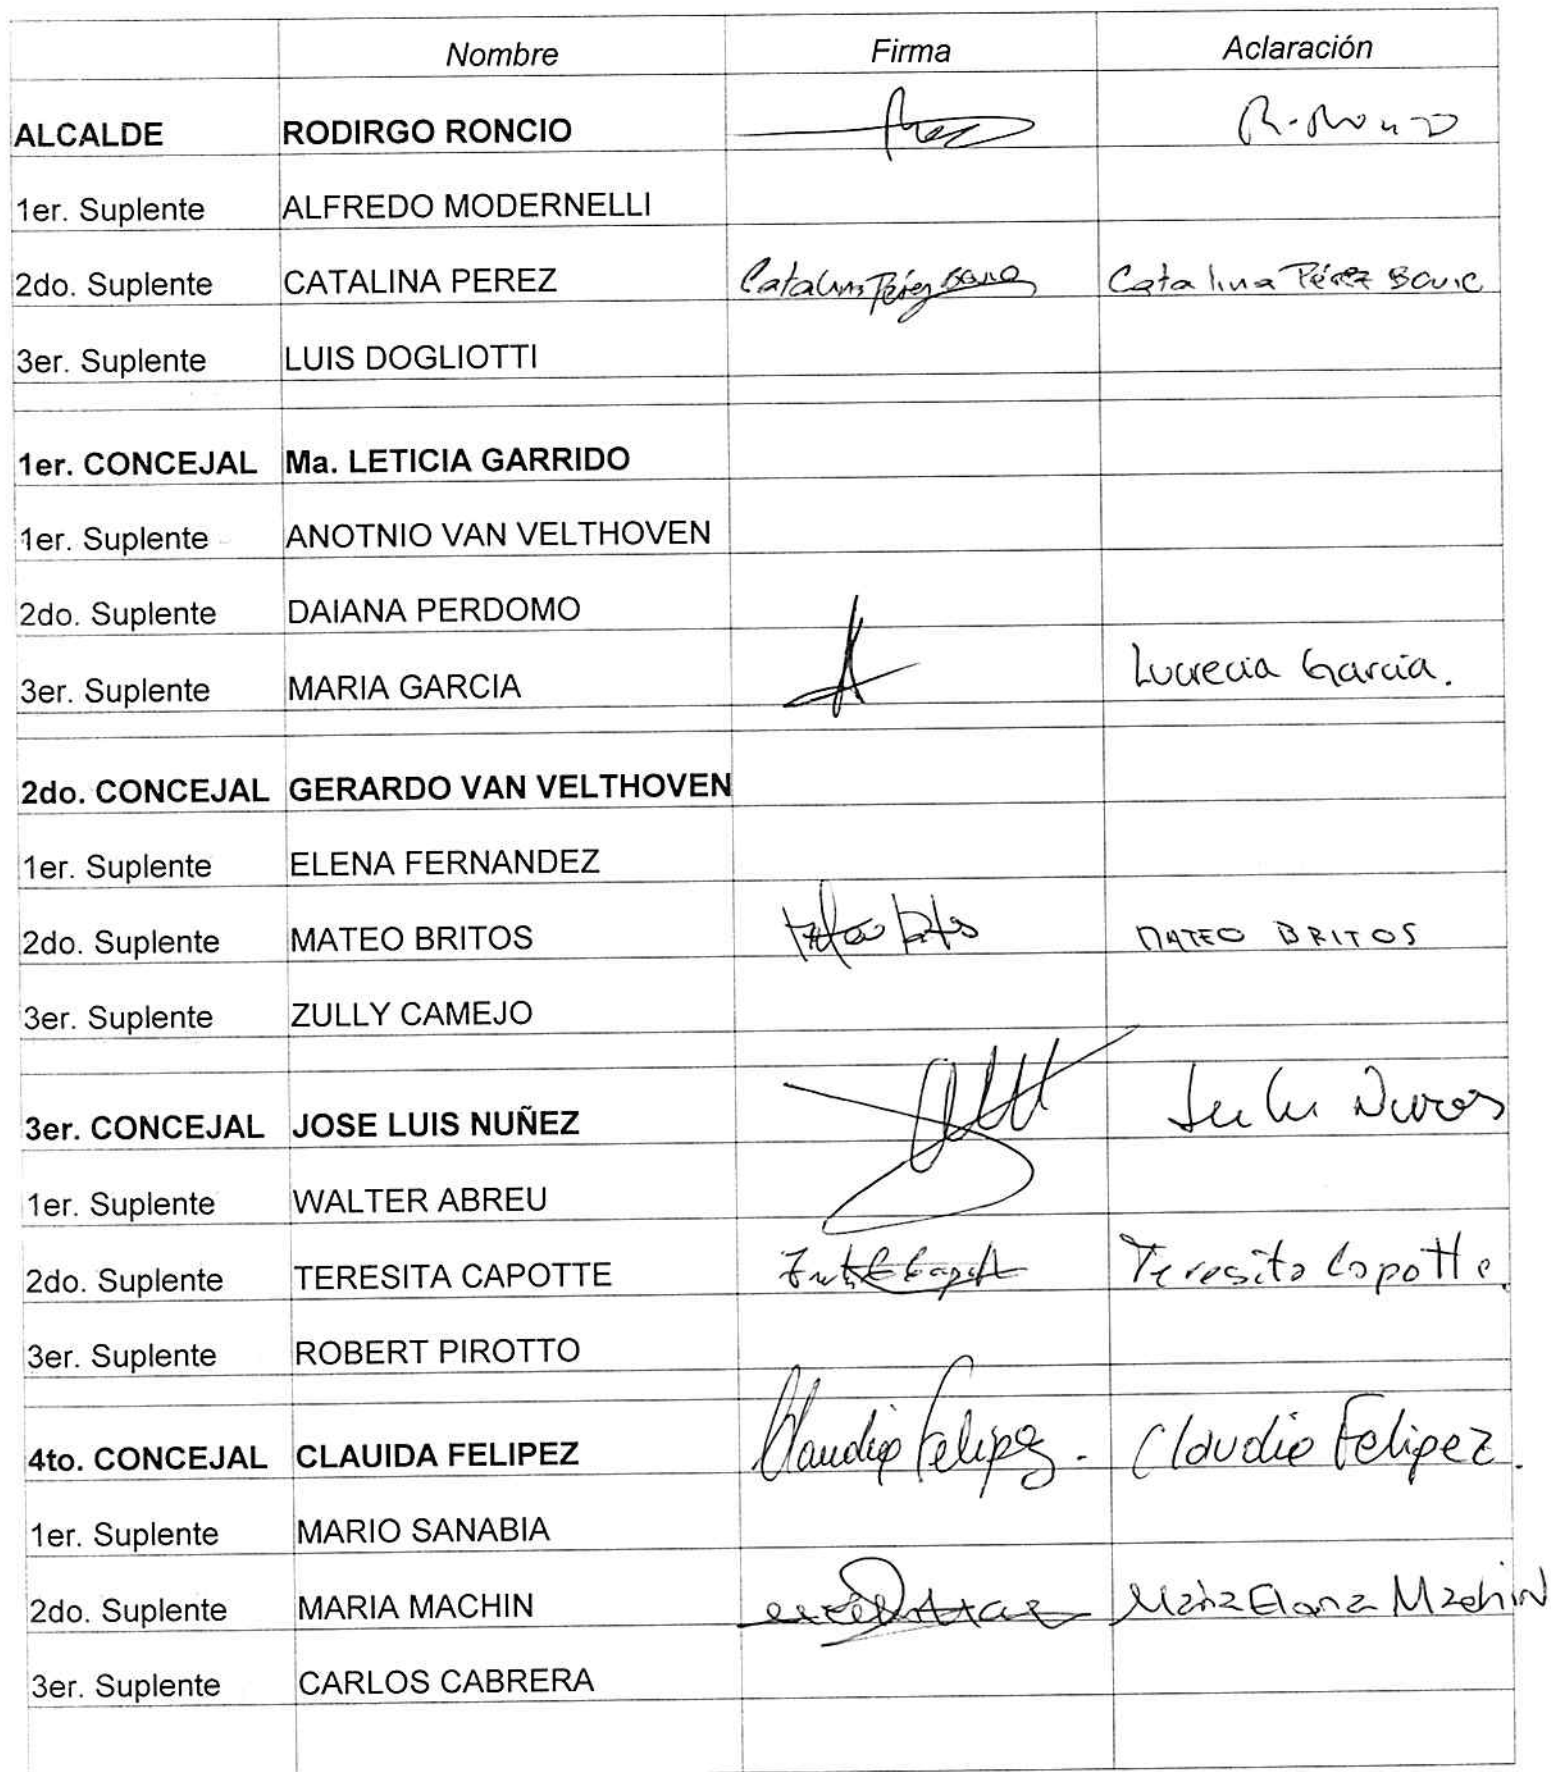 Nombre Firma Aclaración
ALCALDE RODIRGO RONCIO
1er. Suplente ALFREDO MODERNELLI
2do. Suplente CATALINA PEREZ Catalina Pérez Catalina Pérez
3er. Suplente LUIS DOGLIOTTI
1er. CONCEJAL Ma. LETICIA GARRIDO
1er. Suplente ANOTNIO VAN VELTHOVEN
2do. Suplente DAIANA PERDOMO
3er. Suplente MARIA GARCIA Lucrecia García.
2do. CONCEJAL GERARDO VAN VELTHOVEN
1er. Suplente ELENA FERNANDEZ
2do. Suplente MATEO BRITOS Mateo Britos MATEO BRITOS
3er. Suplente ZULLY CAMEJO
3er. CONCEJAL JOSE LUIS NUÑEZ
1er. Suplente WALTER ABREU
2do. Suplente TERESITA CAPOTTE Teresita Capotte.
3er. Suplente ROBERT PIROTTO
4to. CONCEJAL CLAUIDA FELIPEZ Claudia Felipez. Claudia Felipez.
1er. Suplente MARIO SANABIA
2do. Suplente MARIA MACHIN Maria Elena Machin
3er. Suplente CARLOS CABRERA